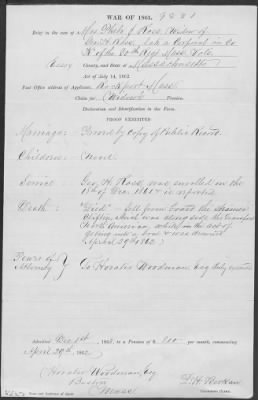 WAR OF 1861.
Entry in the case of Mrs. Phila J. Rowe, Widow of
Geo. H. Rowe, late a Corporal in Co.
K of the 20th Regt Mass Vols.
Essex County, and State of Massachusetts
Act of July 14, 1862.
Post Office address of Applicant, Rockport Mass.
Claim for Widow's Pension.
Declaration and Identification in the Form.
PROOF EXHIBITED
Marriage Proved by copy of Public Record.
Children None.
Service Geo. H. Rowe was enrolled on the
of Dec. 1861 & is reported
Death "Died" fell from board the steamer
which was along side the transport
North America, whilst in the act of
going into a boat & was drowned
(April 29th 1862)
Power of Attorney To Horatio Woodman, Esq duly executed
Admitted Dec 1st 1862, to a Pension of $8.00 per month, commencing
April 29th, 1862.
Horatio Woodman, Esq
Boston
Mass